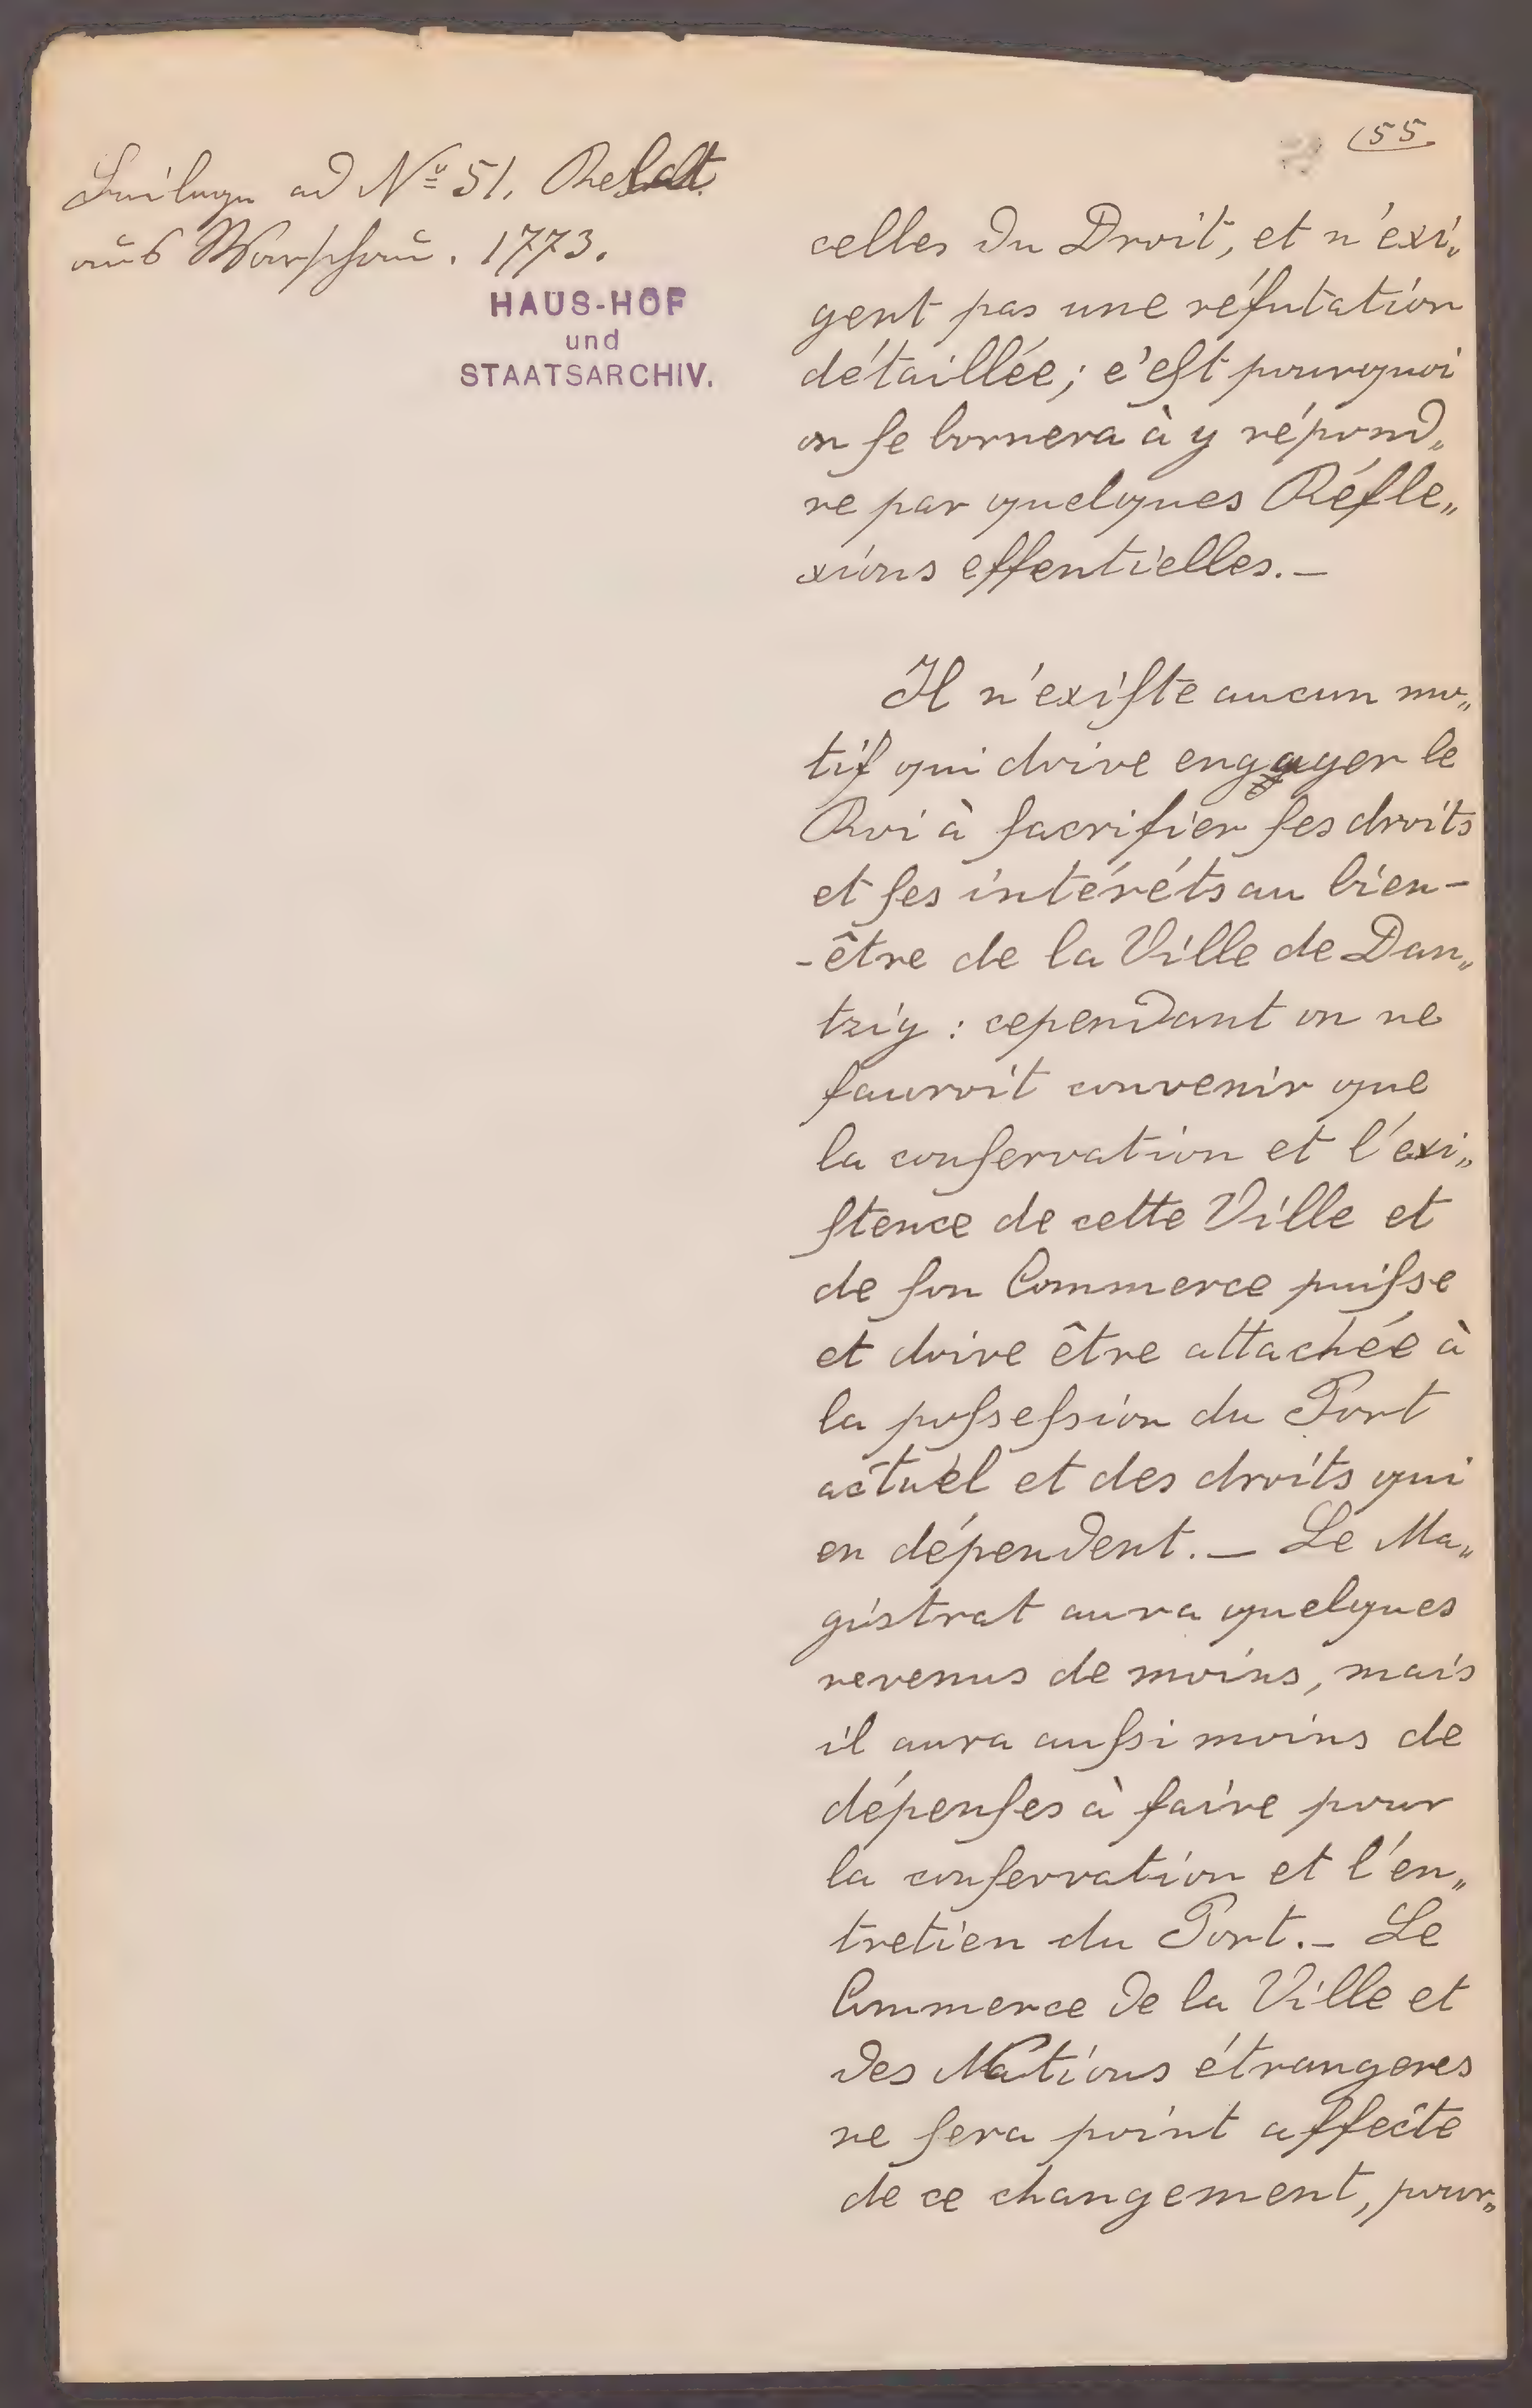 Beilage ad Nº 51. Rehdt.
aus Warschau. 1773.
HAUS-HOF
und
STAATSARCHIV.
55.
celles du Droit, et n'exi„
gent pas une réfutation
détaillée; c'eſt pourquoi
on ſe bornera à y répond„
re par quelques Réfle„
xions eſſentielles. —
Il n'exiſte aucun mo„
tif qui doive engager le
Roi à ſacrifier ſes droits
et ſes intéréts au bien-
-être de la Ville de Dan„
tzig : cependant on ne
ſauroit convenir que
la conſervation et l'exi„
ſtence de cette Ville et
de ſon Commerce puiſse
et doive être attachée à
la poſseſsion du Port
actuel et des droits qui
en dépendent. — Le Ma„
gistrat aura quelques
revenus de moins, mais
il aura auſsi moins de
dépenſes à faire pour
la conſervation et l'en„
tretien du Port. — Le
Commerce de la Ville et
des Nations étrangeres
ne ſera point affecte
de ce changement, pour„